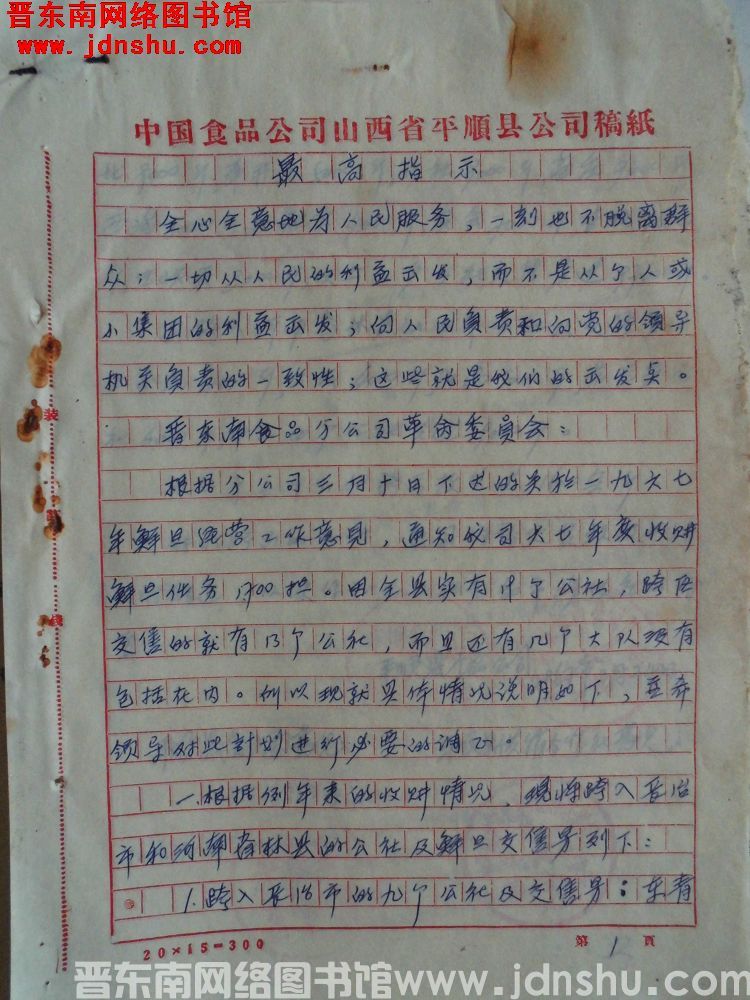 晋东南网络图书馆
www.jdnshu.com
中国食品公司山西省平順县公司稿紙
最高指示
全心全意地为人民服务，一刻也不脱离群
众；一切从人民的利益出发，而不是从个人或
小集团的利益出发；向人民负责和向党的领导
机关负责的一致性；这些就是我们的出发点。
晋东南食品分公司革命委员会：
根据分公司三月十日下达的关于一九六七
年鲜旦经营工作意见，通知我司六七年度收购
鲜旦任务1700担。因全县实有廿个公社，跨区
交售的就有13个公社，而且还有几个大队没有
包括在内。所以现就具体情况说明如下，并希
领导对此计划进行必要的调正。
一、根据例年来的收购情况，现将跨入长治
市和河南省林县的公社及鲜旦交售另列下：
1.跨入长治市的九个公社及交售另：东青
装
线
20×15=300
第1頁
晋东南网络图书馆 www.jdnshu.com